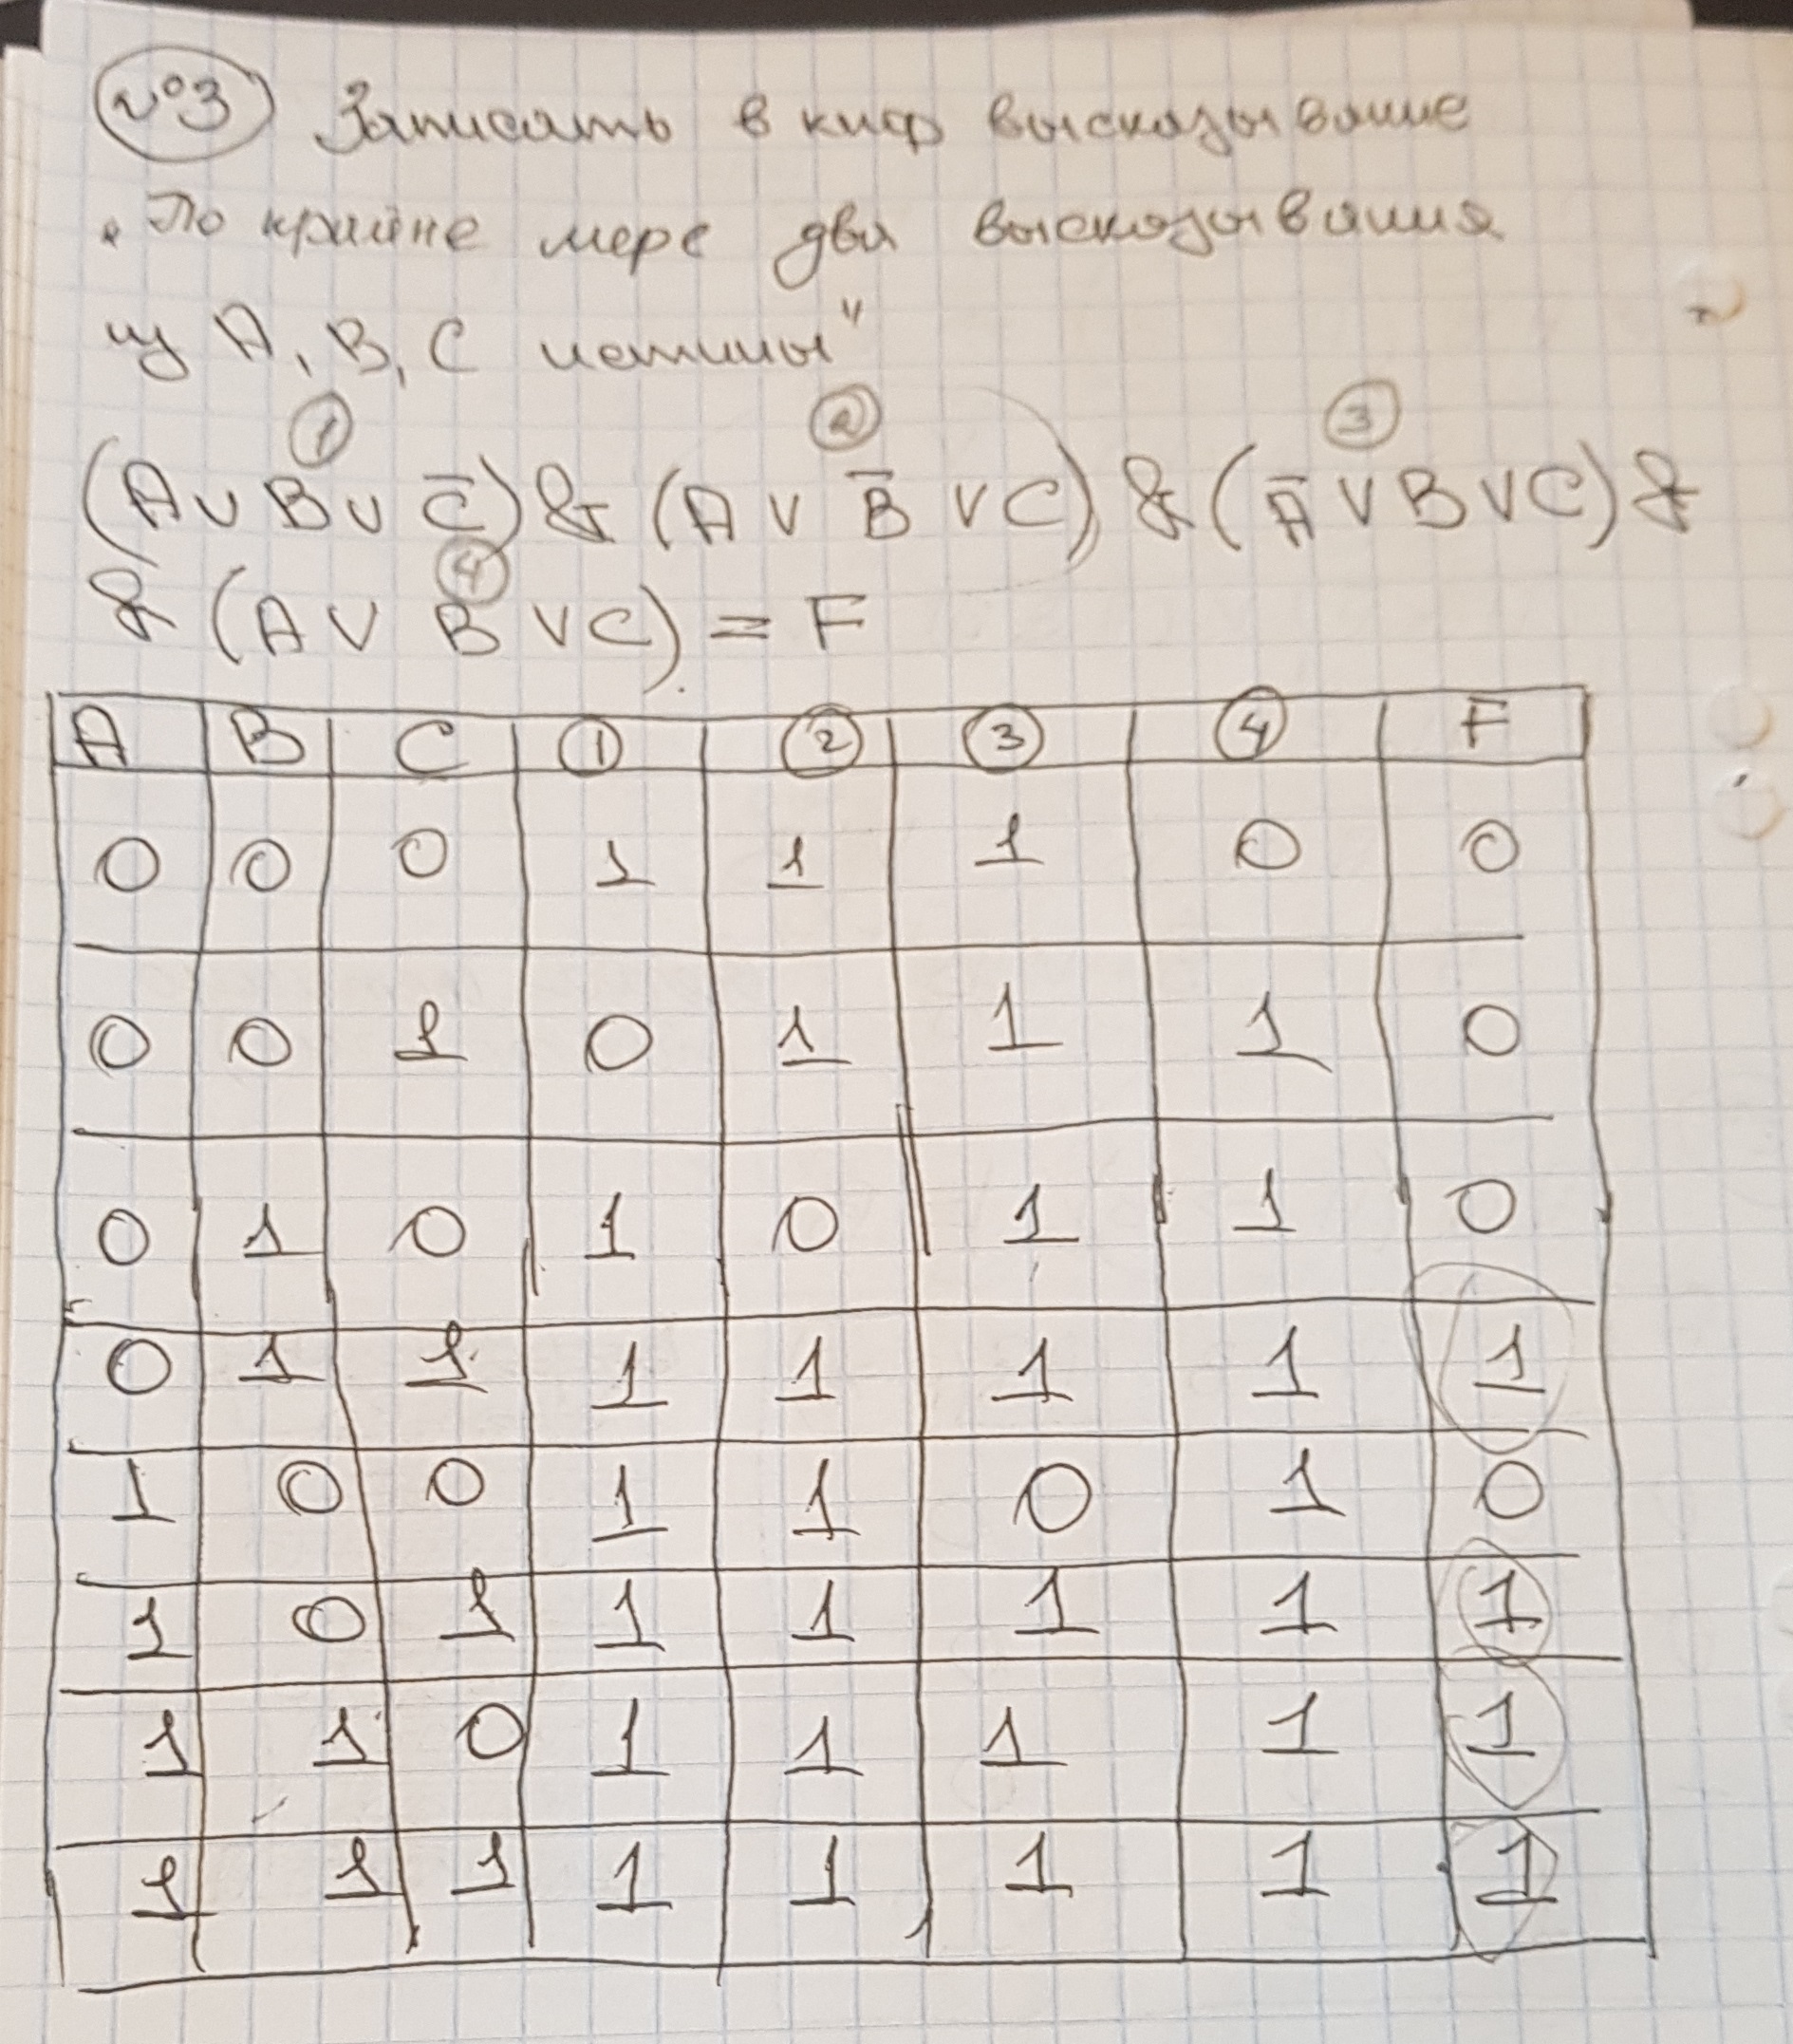 №3 Записать в кнф высказывание
"По крайне мере два высказывания
из A, B, C истины"
① ② ③
(A ∨ B ∨ C̅) & (A ∨ B̅ ∨ C) & (A̅ ∨ B ∨ C) &
④
& (A ∨ B ∨ C) = F
A B C ① ② ③ ④ F
0 0 0 1 1 1 0 0
0 0 1 0 1 1 1 0
0 1 0 1 0 1 1 0
0 1 1 1 1 1 1 1
1 0 0 1 1 0 1 0
1 0 1 1 1 1 1 1
1 1 0 1 1 1 1 1
1 1 1 1 1 1 1 1